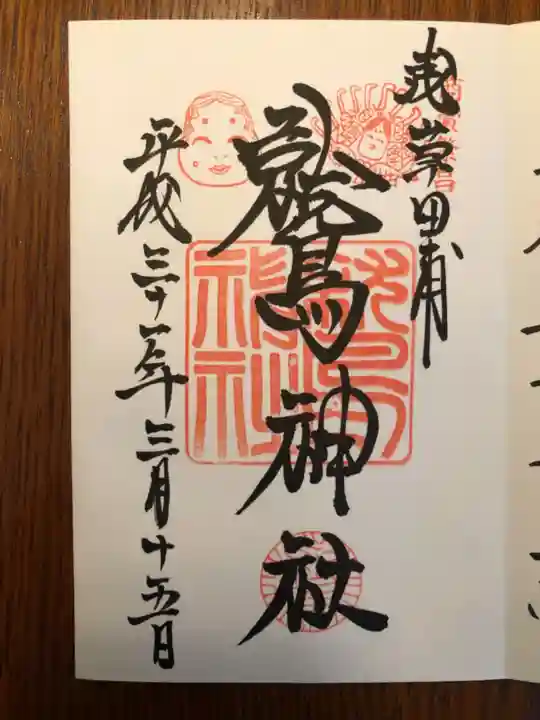 浅草田甫
鷲神社
平成三十一年三月十五日